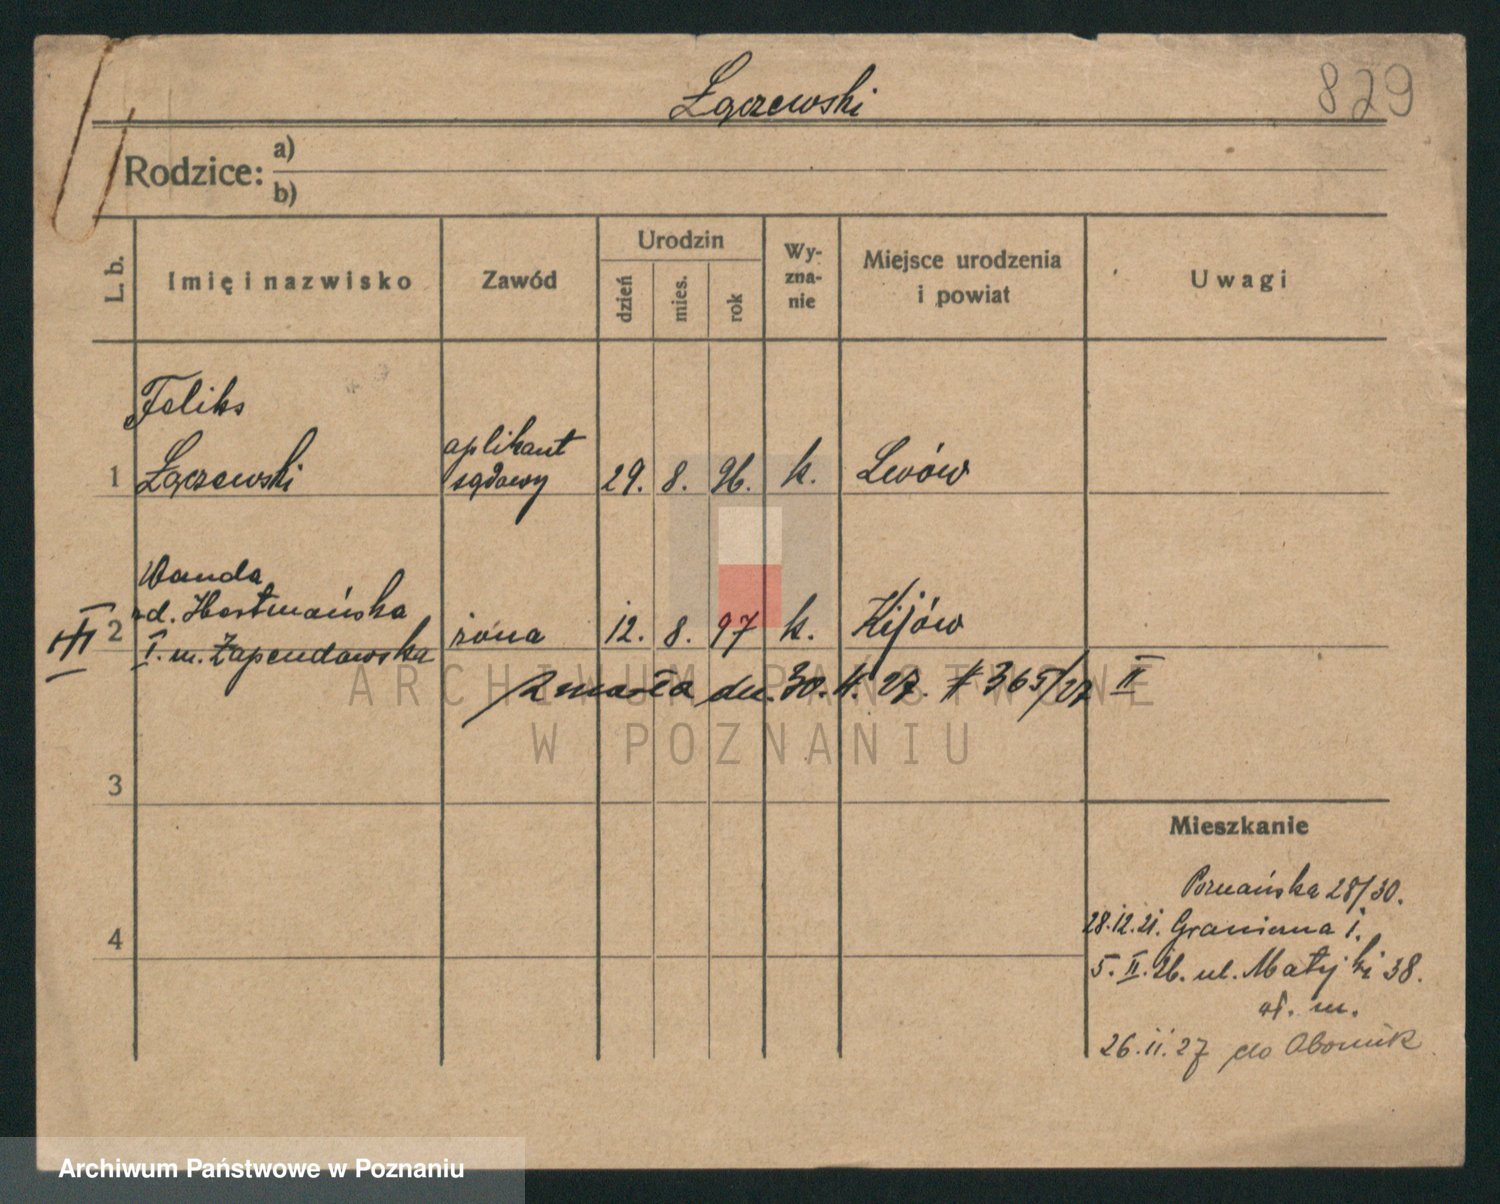 829
Łączewski
Rodzice: a)
b)
L. b.
Imię i nazwisko
Zawód
Urodzin
dzień
mies.
rok
Wy-
zna-
nie
Miejsce urodzenia
i powiat
Uwagi
Feliks
aplikant
1 Łączewski sądowy 29. 8. 96. k. Lwów
Wanda
2 żona 12. 8. 97 k. Kijów
I. m. Zapendowska
zmarła dn. 30. 4. 27. # 365/27 II
3
Mieszkanie
Poznańska 28/30.
4 28.12.21. Graniczna 1.
5. II. 26. ul. Matejki 38.
wł. m.
26.11.27 do Obornik
ARCHIWUM PAŃSTWOWE
W POZNANIU
Archiwum Państwowe w Poznaniu